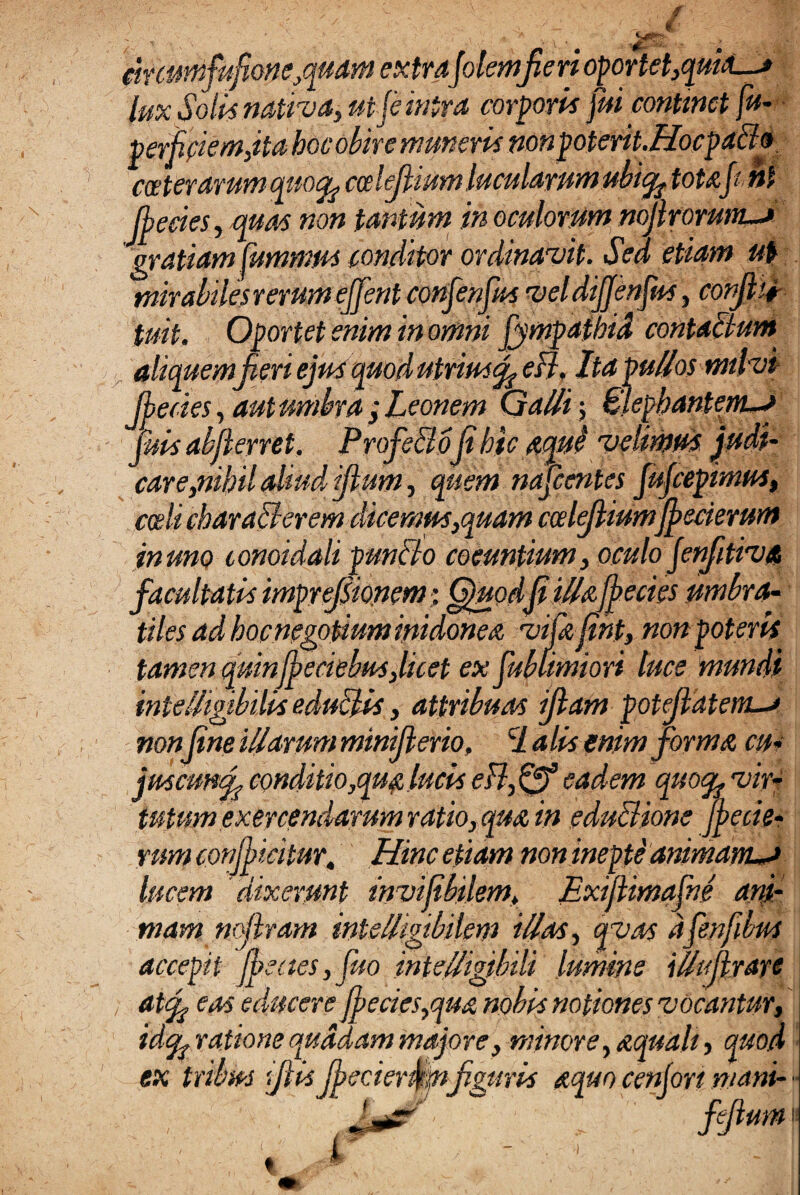 circumfusione,quam extra solem fieri oportet,quia
lux Solis nativa, ut se intra corporis sui continet su-
perficiem,ita hoc obire muneris non poterit.Hoc pacto
cœterarum quoq; cœlestium lucularum ubiq; totæ sunt
species, quas non tantùm in oculorum nostrorum
gratiam summus conditor ordinavit. Sed etiam ut
mirabiles rerum essent consensus vel dissensus, consti-
tuit. Oportet enim in omni sympathiâ contactum
aliquem fieri ejus quod utriusq; est. Ita pullos milvi
species, aut umbra; Leonem Galli; Elephantem
suis absterret. Profectò si hic æquè velimus judi-
care,nihil aliud istum, quem nascentes suscepimus,
cœli characterem dicemus,quam cœlestium specierum
in uno conoidali puncto coeuntium, oculo sensitivæ
facultatis impressionem: Quod si illæ species umbra-
tiles ad hoc negotium inidoneæ visæ sint, non poteris
tamen quin speciebus,licet ex sublimiori luce mundi
intelligibilis eductis, attribuas istam potestatem
non sine illarum ministerio. Talis enim formæ cu-
juscunq; conditio,quæ lucis est,& eadem quoq; vir-
tutum exercendarum ratio, quæ in eductione specie-
rum conspicitur. Hinc etiam non ineptè animam
lucem dixerunt invisibilem. Existimasnè ani-
mam nostram intelligibilem illas, qvas à sensibus
accepit species, suo intelligibili lumine illustrare
atq; eas educere species,quæ nobis notiones vocantur,
idq; ratione quâdam majore, minore, æquali, quod
ex tribus istis specierum figuris æquo censori mani-
festum